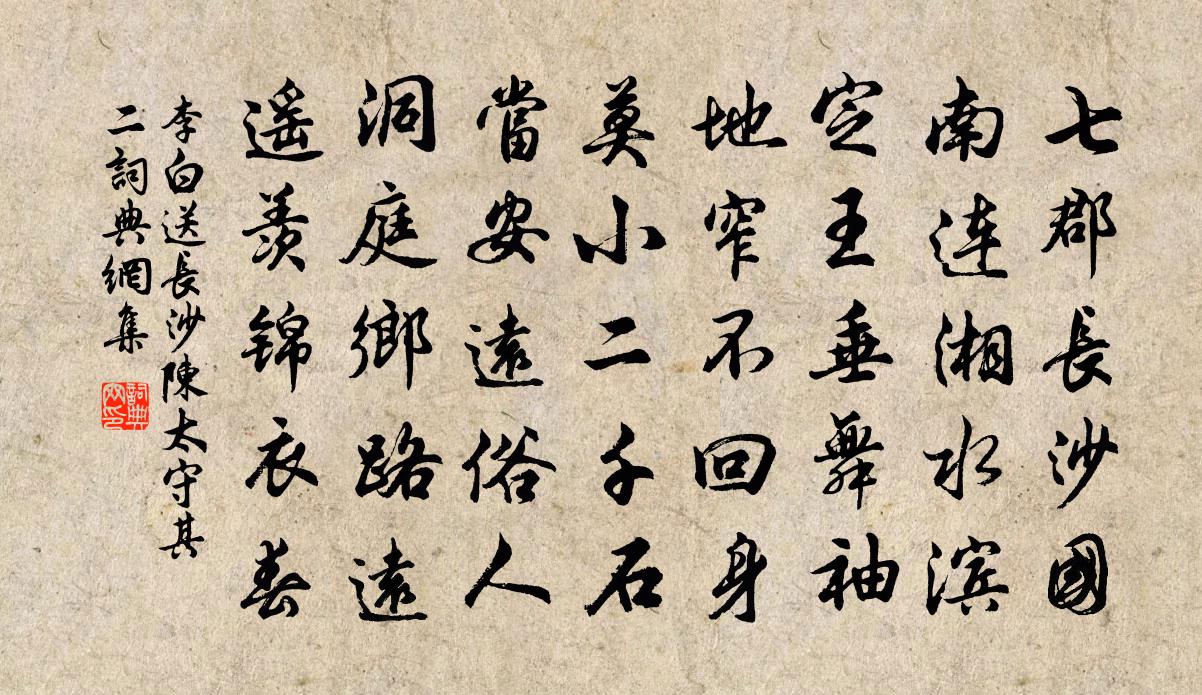 七郡長沙國
南連湘水滨
定王垂舞袖
地窄不回身
莫小二千石
當安遠俗人
洞庭鄉路遠
遥羨錦衣春
李白送長沙陳太守其
二詞典網集
詞典
网印